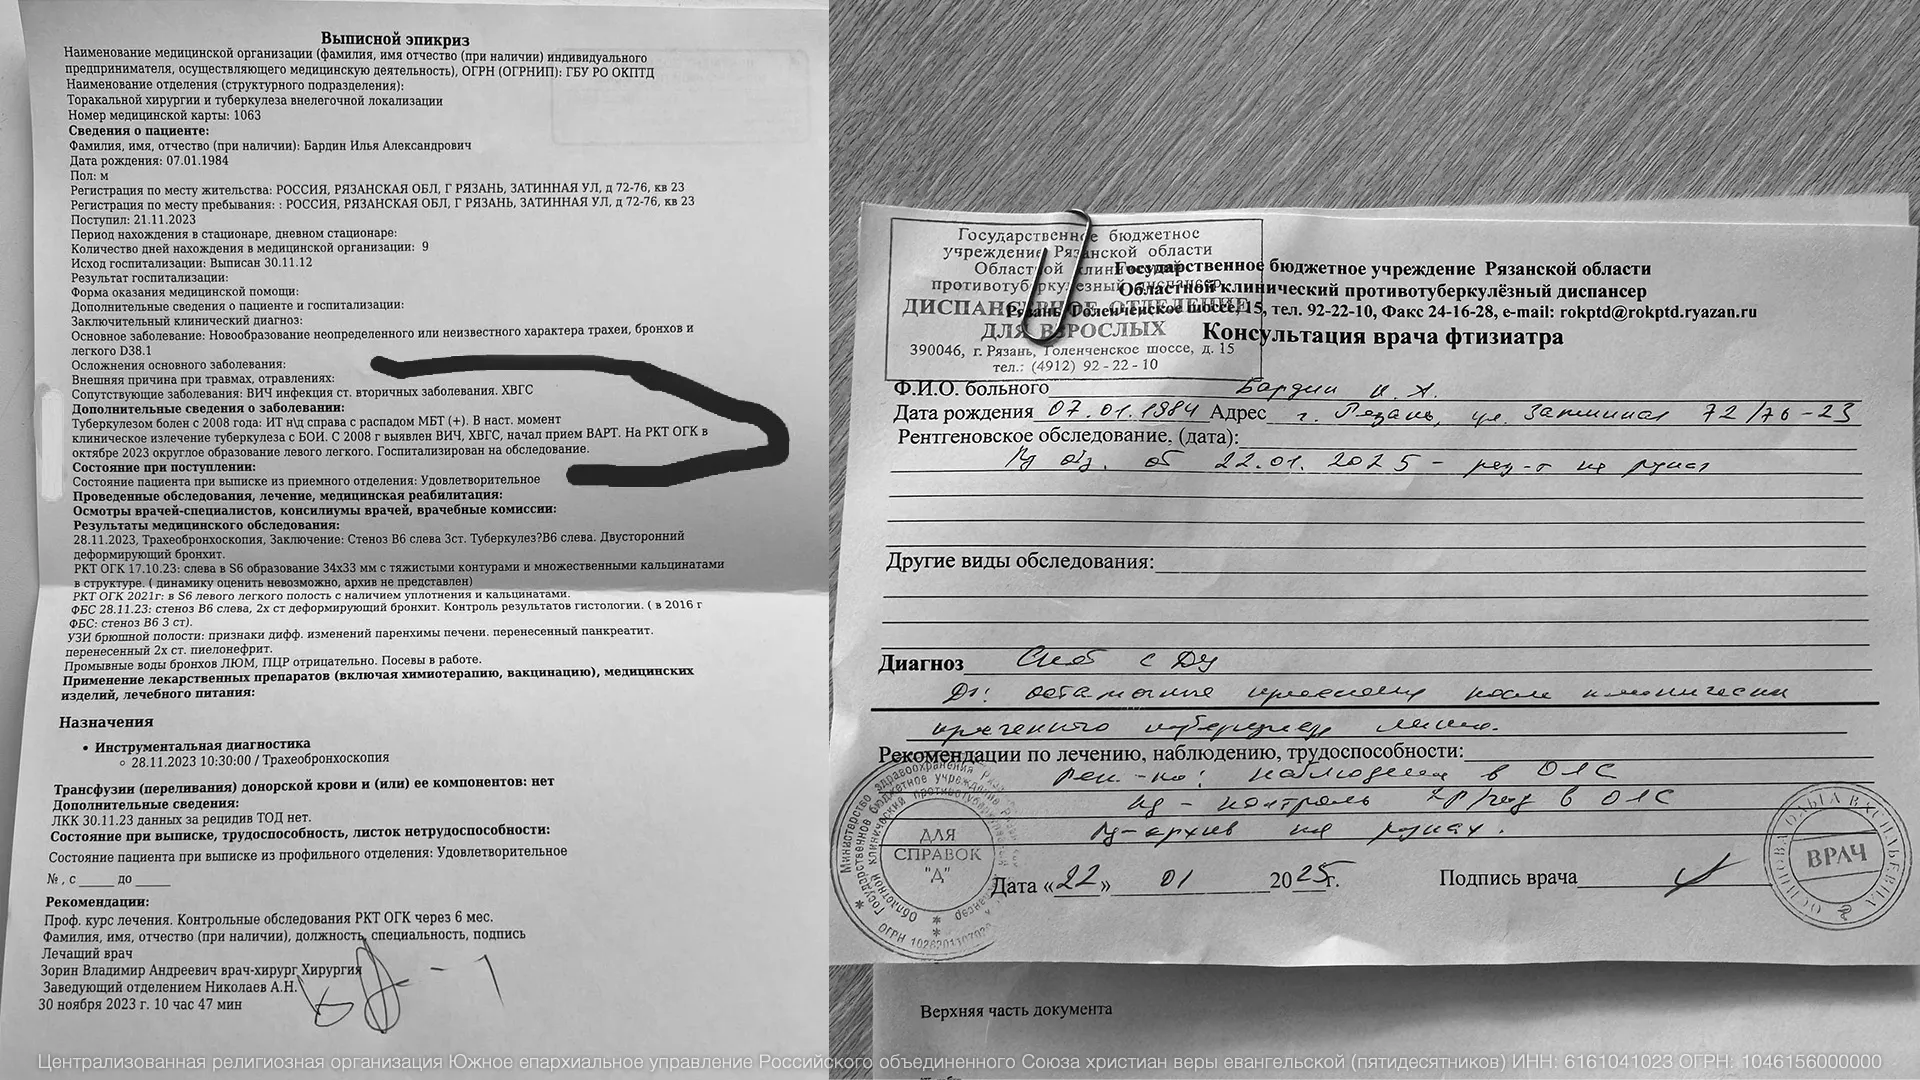 Выписной эпикриз
Наименование медицинской организации (фамилия, имя отчество (при наличии) индивидуального
предпринимателя, осуществляющего медицинскую деятельность), ОГРН (ОГРНИП): ГБУ РО ОКПТД
Наименование отделения (структурного подразделения):
Торакальной хирургии и туберкулеза внелегочной локализации
Номер медицинской карты: 1063
Сведения о пациенте:
Фамилия, имя, отчество (при наличии): Бардин Илья Александрович
Дата рождения: 07.01.1984
Пол: м
Регистрация по месту жительства: РОССИЯ, РЯЗАНСКАЯ ОБЛ, Г РЯЗАНЬ, ЗАТИННАЯ УЛ, д 72-76, кв 23
Регистрация по месту пребывания: : РОССИЯ, РЯЗАНСКАЯ ОБЛ, Г РЯЗАНЬ, ЗАТИННАЯ УЛ, д 72-76, кв 23
Поступил: 21.11.2023
Период нахождения в стационаре, дневном стационаре:
Количество дней нахождения в медицинской организации: 9
Исход госпитализации: Выписан 30.11.12
Результат госпитализации:
Форма оказания медицинской помощи:
Дополнительные сведения о пациенте и госпитализации:
Заключительный клинический диагноз:
Основное заболевание: Новообразование неопределенного или неизвестного характера трахеи, бронхов и
легкого D38.1
Осложнения основного заболевания:
Внешняя причина при травмах, отравлениях:
Сопутствующие заболевания: ВИЧ инфекция ст. вторичных заболевания. ХВГС
Дополнительные сведения о заболевании:
Туберкулезом болен с 2008 года: ИТ н\д справа с распадом МБТ (+). В наст. момент
клиническое излечение туберкулеза с БОИ. С 2008 г выявлен ВИЧ, ХВГС, начал прием ВАРТ. На РКТ ОГК в
октябре 2023 округлое образование левого легкого. Госпитализирован на обследование.
Состояние при поступлении:
Состояние пациента при выписке из приемного отделения: Удовлетворительное
Проведенные обследования, лечение, медицинская реабилитация:
Осмотры врачей-специалистов, консилиумы врачей, врачебные комиссии:
Результаты медицинского обследования:
28.11.2023, Трахеобронхоскопия, Заключение: Стеноз В6 слева 3ст. Туберкулез?В6 слева. Двусторонний
деформирующий бронхит.
РКТ ОГК 17.10.23: слева в S6 образование 34х33 мм с тяжистыми контурами и множественными кальцинатами
в структуре. ( динамику оценить невозможно, архив не представлен)
РКТ ОГК 2021г: в S6 левого легкого полость с наличием уплотнения и кальцинатами.
ФБС 28.11.23: стеноз В6 слева, 2х ст деформирующий бронхит. Контроль результатов гистологии. ( в 2016 г
ФБС: стеноз В6 3 ст).
УЗИ брюшной полости: признаки дифф. изменений паренхимы печени. перенесенный панкреатит.
перенесенный 2х ст. пиелонефрит.
Промывные воды бронхов ЛЮМ, ПЦР отрицательно. Посевы в работе.
Применение лекарственных препаратов (включая химиотерапию, вакцинацию), медицинских
изделий, лечебного питания:
Назначения
• Инструментальная диагностика
○ 28.11.2023 10:30:00 / Трахеобронхоскопия
Трансфузии (переливания) донорской крови и (или) ее компонентов: нет
Дополнительные сведения:
ЛКК 30.11.23 данных за рецидив ТОД нет.
Состояние при выписке, трудоспособность, листок нетрудоспособности:
Состояние пациента при выписке из профильного отделения: Удовлетворительное
№ , с _____ до _____
Рекомендации:
Проф. курс лечения. Контрольные обследования РКТ ОГК через 6 мес.
Фамилия, имя, отчество (при наличии), должность, специальность, подпись
Лечащий врач
Зорин Владимир Андреевич врач-хирург Хирургия
Заведующий отделением Николаев А.Н.
30 ноября 2023 г. 10 час 47 мин
Государственное бюджетное
учреждение Рязанской области
Областной клинический
противотуберкулезный диспансер
ДИСПАНСЕРНОЕ ОТДЕЛЕНИЕ
ДЛЯ ВЗРОСЛЫХ
390046, г. Рязань, Голенченское шоссе, д. 15
тел.: (4912) 92 - 22 - 10
Государственное бюджетное учреждение Рязанской области
Областной клинический противотуберкулёзный диспансер
Рязань, Голенчинское шоссе, 15, тел. 92-22-10, Факс 24-16-28, e-mail: rokptd@rokptd.ryazan.ru
Консультация врача фтизиатра
Ф.И.О. больного Бардин И. А.
Дата рождения 07.01.1984 Адрес г. Рязань, ул. Затинная 72/76-23
Рентгеновское обследование, (дата):
от 22.01.2025 - на руках
Другие виды обследования:
Диагноз
остаточные изменения после клинически
излеченного туберкулеза
Рекомендации по лечению, наблюдению, трудоспособности:
наблюдение в
контроль в
архив на руках.
ДЛЯ
СПРАВОК
"Д"
Дата «22» 01 2025г.
Подпись врача
ВРАЧ
Верхняя часть документа
Централизованная религиозная организация Южное епархиальное управление Российского объединенного Союза христиан веры евангельской (пятидесятников) ИНН: 6161041023 ОГРН: 1046156000000